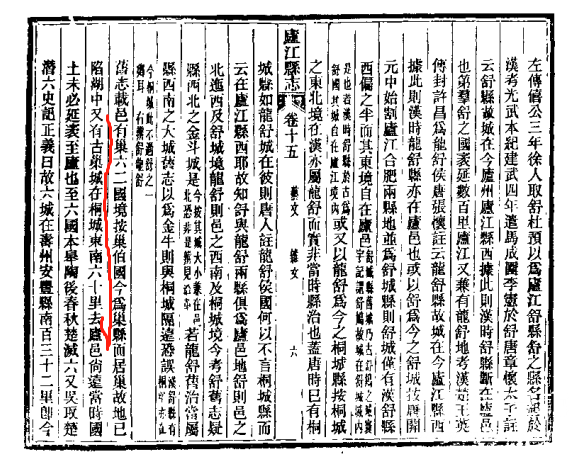 左傳僖公三年徐人取舒杜預以為廬江舒縣舒之縣名起於
漢考光武本紀建武四年遣馬成圍李憲於舒唐章懷太子註
云舒縣故城在今廬州廬江縣西據此則漢時舒縣斷在廬邑
也第羣舒之國袤延數百里廬江又兼有龍舒地考漢
傅封許昌為龍舒侯唐張懷註云龍舒縣故城在今廬江縣西
據此則漢時龍舒縣亦在廬邑也或以舒為今之舒城按唐開
元中始割廬江合肥兩縣地並為舒城縣則舒城僅有漢舒縣
西偏之半而其東境自在廬邑
或又以龍舒為今之桐城縣按桐城
之東北境在漢亦屬龍舒而實非當時縣治也蓋唐時已有桐
廬江縣志
卷十五
藝文 雜文
六
城縣如龍舒城在彼則唐人註龍舒侯國何以不言桐城縣而
云在廬江縣西耶故知舒與龍舒兩縣俱為廬邑地舒則邑之
北迤西及舒城境龍舒則邑之西南及桐城境今考舒舊志疑
縣西北之金斗城是
若龍舒舊治當屬
縣西南之大城舊志以為金牛則與桐城隔遠恐誤
舊志載邑有巢六二國境按巢伯國今為巢縣而居巢故地已
陷湖中又有古巢城在桐城東南六十里去廬邑尚遠當時國
土未必延袤至廬也至六國本皋陶後春秋楚滅六又吳取楚
潛六史記正義曰故六城在壽州安豐縣南百三十二里即今